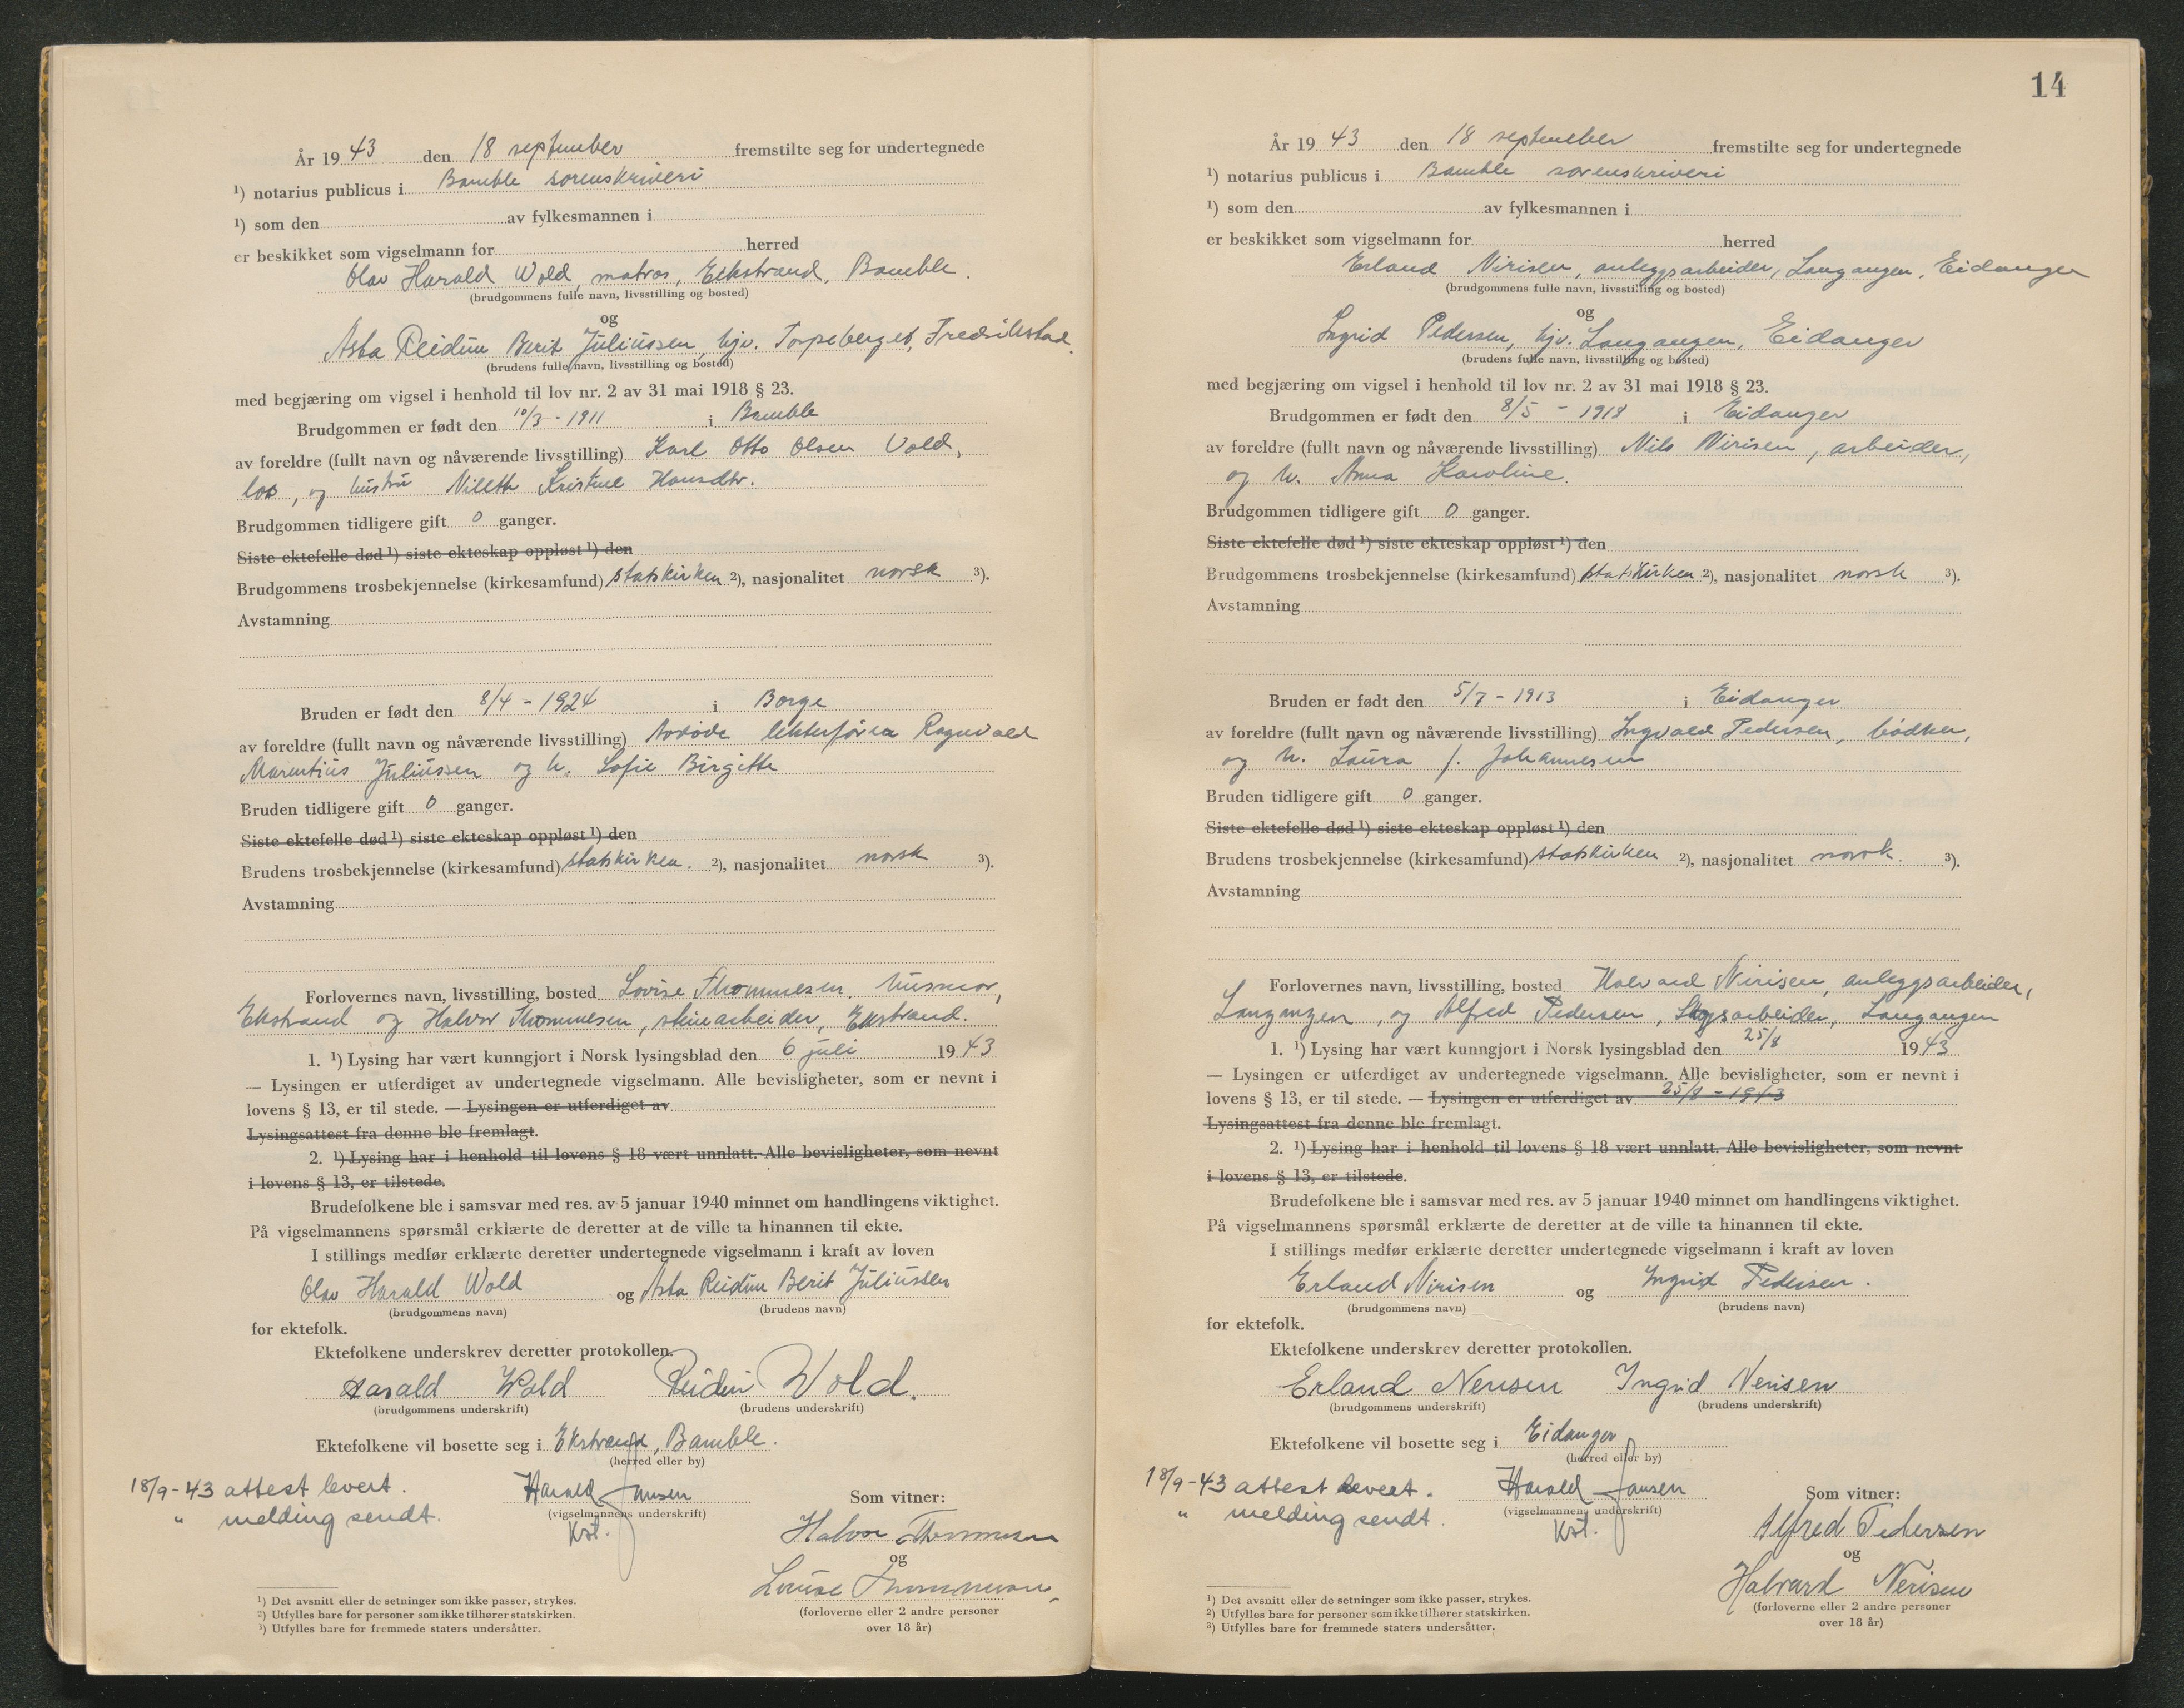 År 1943 den 18 september fremstilte seg for undertegnede
¹) notarius publicus i Bamble sorenskriveri
¹) som den av fylkesmannen i
er beskikket som vigselmann for herred
Olav Harald Wold, matros, Ekstrand, Bamble.
(brudgommens fulle navn, livsstilling og bosted)
og
Asta Reidun Berit Juliussen, hjv. Torpeberget, Fredrikstad.
(brudens fulle navn, livsstilling og bosted)
med begjæring om vigsel i henhold til lov nr. 2 av 31 mai 1918 § 23.
Brudgommen er født den 10/3 - 1911 i Bamble
av foreldre (fullt navn og nåværende livsstilling) Karl Otto Olsen Vold,
los, og hustru Kristine Hansdtr.
Brudgommen tidligere gift 0 ganger.
Siste ektefelle død ¹) siste ekteskap oppløst ¹) den
Brudgommens trosbekjennelse (kirkesamfund) statskirken ²), nasjonalitet norsk ³).
Avstamning
Bruden er født den 8/4 - 1924 i Borge
av foreldre (fullt navn og nåværende livsstilling) Avdøde lekterfører Ragnvald
Marentius Juliussen og h. Sofie Birgitte
Bruden tidligere gift 0 ganger.
Siste ektefelle død ¹) siste ekteskap oppløst ¹) den
Brudens trosbekjennelse (kirkesamfund) statskirken. ²), nasjonalitet norsk ³).
Avstamning
Forlovernes navn, livsstilling, bosted Lovise Thommesen, husmor,
Ekstrand og Halvor Thommesen, steinarbeider, Ekstrand.
1. ¹) Lysing har vært kunngjort i Norsk lysingsblad den 6 juli 1943
— Lysingen er utferdiget av undertegnede vigselmann. Alle bevisligheter, som er nevnt i
lovens § 13, er til stede. — Lysingen er utferdiget av
Lysingsattest fra denne ble fremlagt.
2. ¹) Lysing har i henhold til lovens § 18 vært unnlatt. Alle bevisligheter, som nevnt
i lovens § 13, er tilstede.
Brudefolkene ble i samsvar med res. av 5 januar 1940 minnet om handlingens viktighet.
På vigselmannens spørsmål erklærte de deretter at de ville ta hinannen til ekte.
I stillings medfør erklærte deretter undertegnede vigselmann i kraft av loven
Olav Harald Wold og Asta Reidun Berit Juliussen
(brudgommens navn) (brudens navn)
for ektefolk.
Ektefolkene underskrev deretter protokollen.
Harald Wold Reidun Wold.
(brudgommens underskrift) (brudens underskrift)
Ektefolkene vil bosette seg i Ekstrand, Bamble.
(herred eller by)
18/9-43 attest levert. Harald Jansen Som vitner:
" melding sendt. (vigselmannens underskrift)
Kst. Halvor Thommesen
og
Lovise Thommesen
(forloverne eller 2 andre personer
over 18 år)
¹) Det avsnitt eller de setninger som ikke passer, strykes.
²) Utfylles bare for personer som ikke tilhører statskirken.
³) Utfylles bare for fremmede staters undersåtter.
14
År 1943 den 18 september fremstilte seg for undertegnede
¹) notarius publicus i Bamble sorenskriveri
¹) som den av fylkesmannen i
er beskikket som vigselmann for herred
Erland Nirisen, anleggsarbeider, Langangen, Eidanger
(brudgommens fulle navn, livsstilling og bosted)
og
Ingrid Pedersen, hjv. Langangen, Eidanger
(brudens fulle navn, livsstilling og bosted)
med begjæring om vigsel i henhold til lov nr. 2 av 31 mai 1918 § 23.
Brudgommen er født den 8/5 - 1918 i Eidanger
av foreldre (fullt navn og nåværende livsstilling) Nils Nirisen, arbeider,
og h. Anna Karoline.
Brudgommen tidligere gift 0 ganger.
Siste ektefelle død ¹) siste ekteskap oppløst ¹) den
Brudgommens trosbekjennelse (kirkesamfund) statskirken ²), nasjonalitet norsk ³).
Avstamning
Bruden er født den 5/7 - 1913 i Eidanger
av foreldre (fullt navn og nåværende livsstilling) Ingvald Pedersen, bødker,
og h. Laura f. Johannesen
Bruden tidligere gift 0 ganger.
Siste ektefelle død ¹) siste ekteskap oppløst ¹) den
Brudens trosbekjennelse (kirkesamfund) statskirken ²), nasjonalitet norsk. ³).
Avstamning
Forlovernes navn, livsstilling, bosted Halvard Nirisen, anleggsarbeider,
Langangen, og Alfred Pedersen, Skogsarbeider, Langangen
1. ¹) Lysing har vært kunngjort i Norsk lysingsblad den 25/8 1943
— Lysingen er utferdiget av undertegnede vigselmann. Alle bevisligheter, som er nevnt i
lovens § 13, er til stede. — Lysingen er utferdiget av 25/8 - 1943
Lysingsattest fra denne ble fremlagt.
2. ¹) Lysing har i henhold til lovens § 18 vært unnlatt. Alle bevisligheter, som nevnt
i lovens § 13, er tilstede.
Brudefolkene ble i samsvar med res. av 5 januar 1940 minnet om handlingens viktighet.
På vigselmannens spørsmål erklærte de deretter at de ville ta hinannen til ekte.
I stillings medfør erklærte deretter undertegnede vigselmann i kraft av loven
Erland Nirisen og Ingrid Pedersen.
(brudgommens navn) (brudens navn)
for ektefolk.
Ektefolkene underskrev deretter protokollen.
Erland Nerisen Ingrid Nerisen
(brudgommens underskrift) (brudens underskrift)
Ektefolkene vil bosette seg i Eidanger
(herred eller by)
18/9-43 attest levert. Harald Jansen Som vitner:
" melding sendt. (vigselmannens underskrift)
Kst. Alfred Pedersen
og
Halvard Nerisen
(forloverne eller 2 andre personer
over 18 år)
¹) Det avsnitt eller de setninger som ikke passer, strykes.
²) Utfylles bare for personer som ikke tilhører statskirken.
³) Utfylles bare for fremmede staters undersåtter.